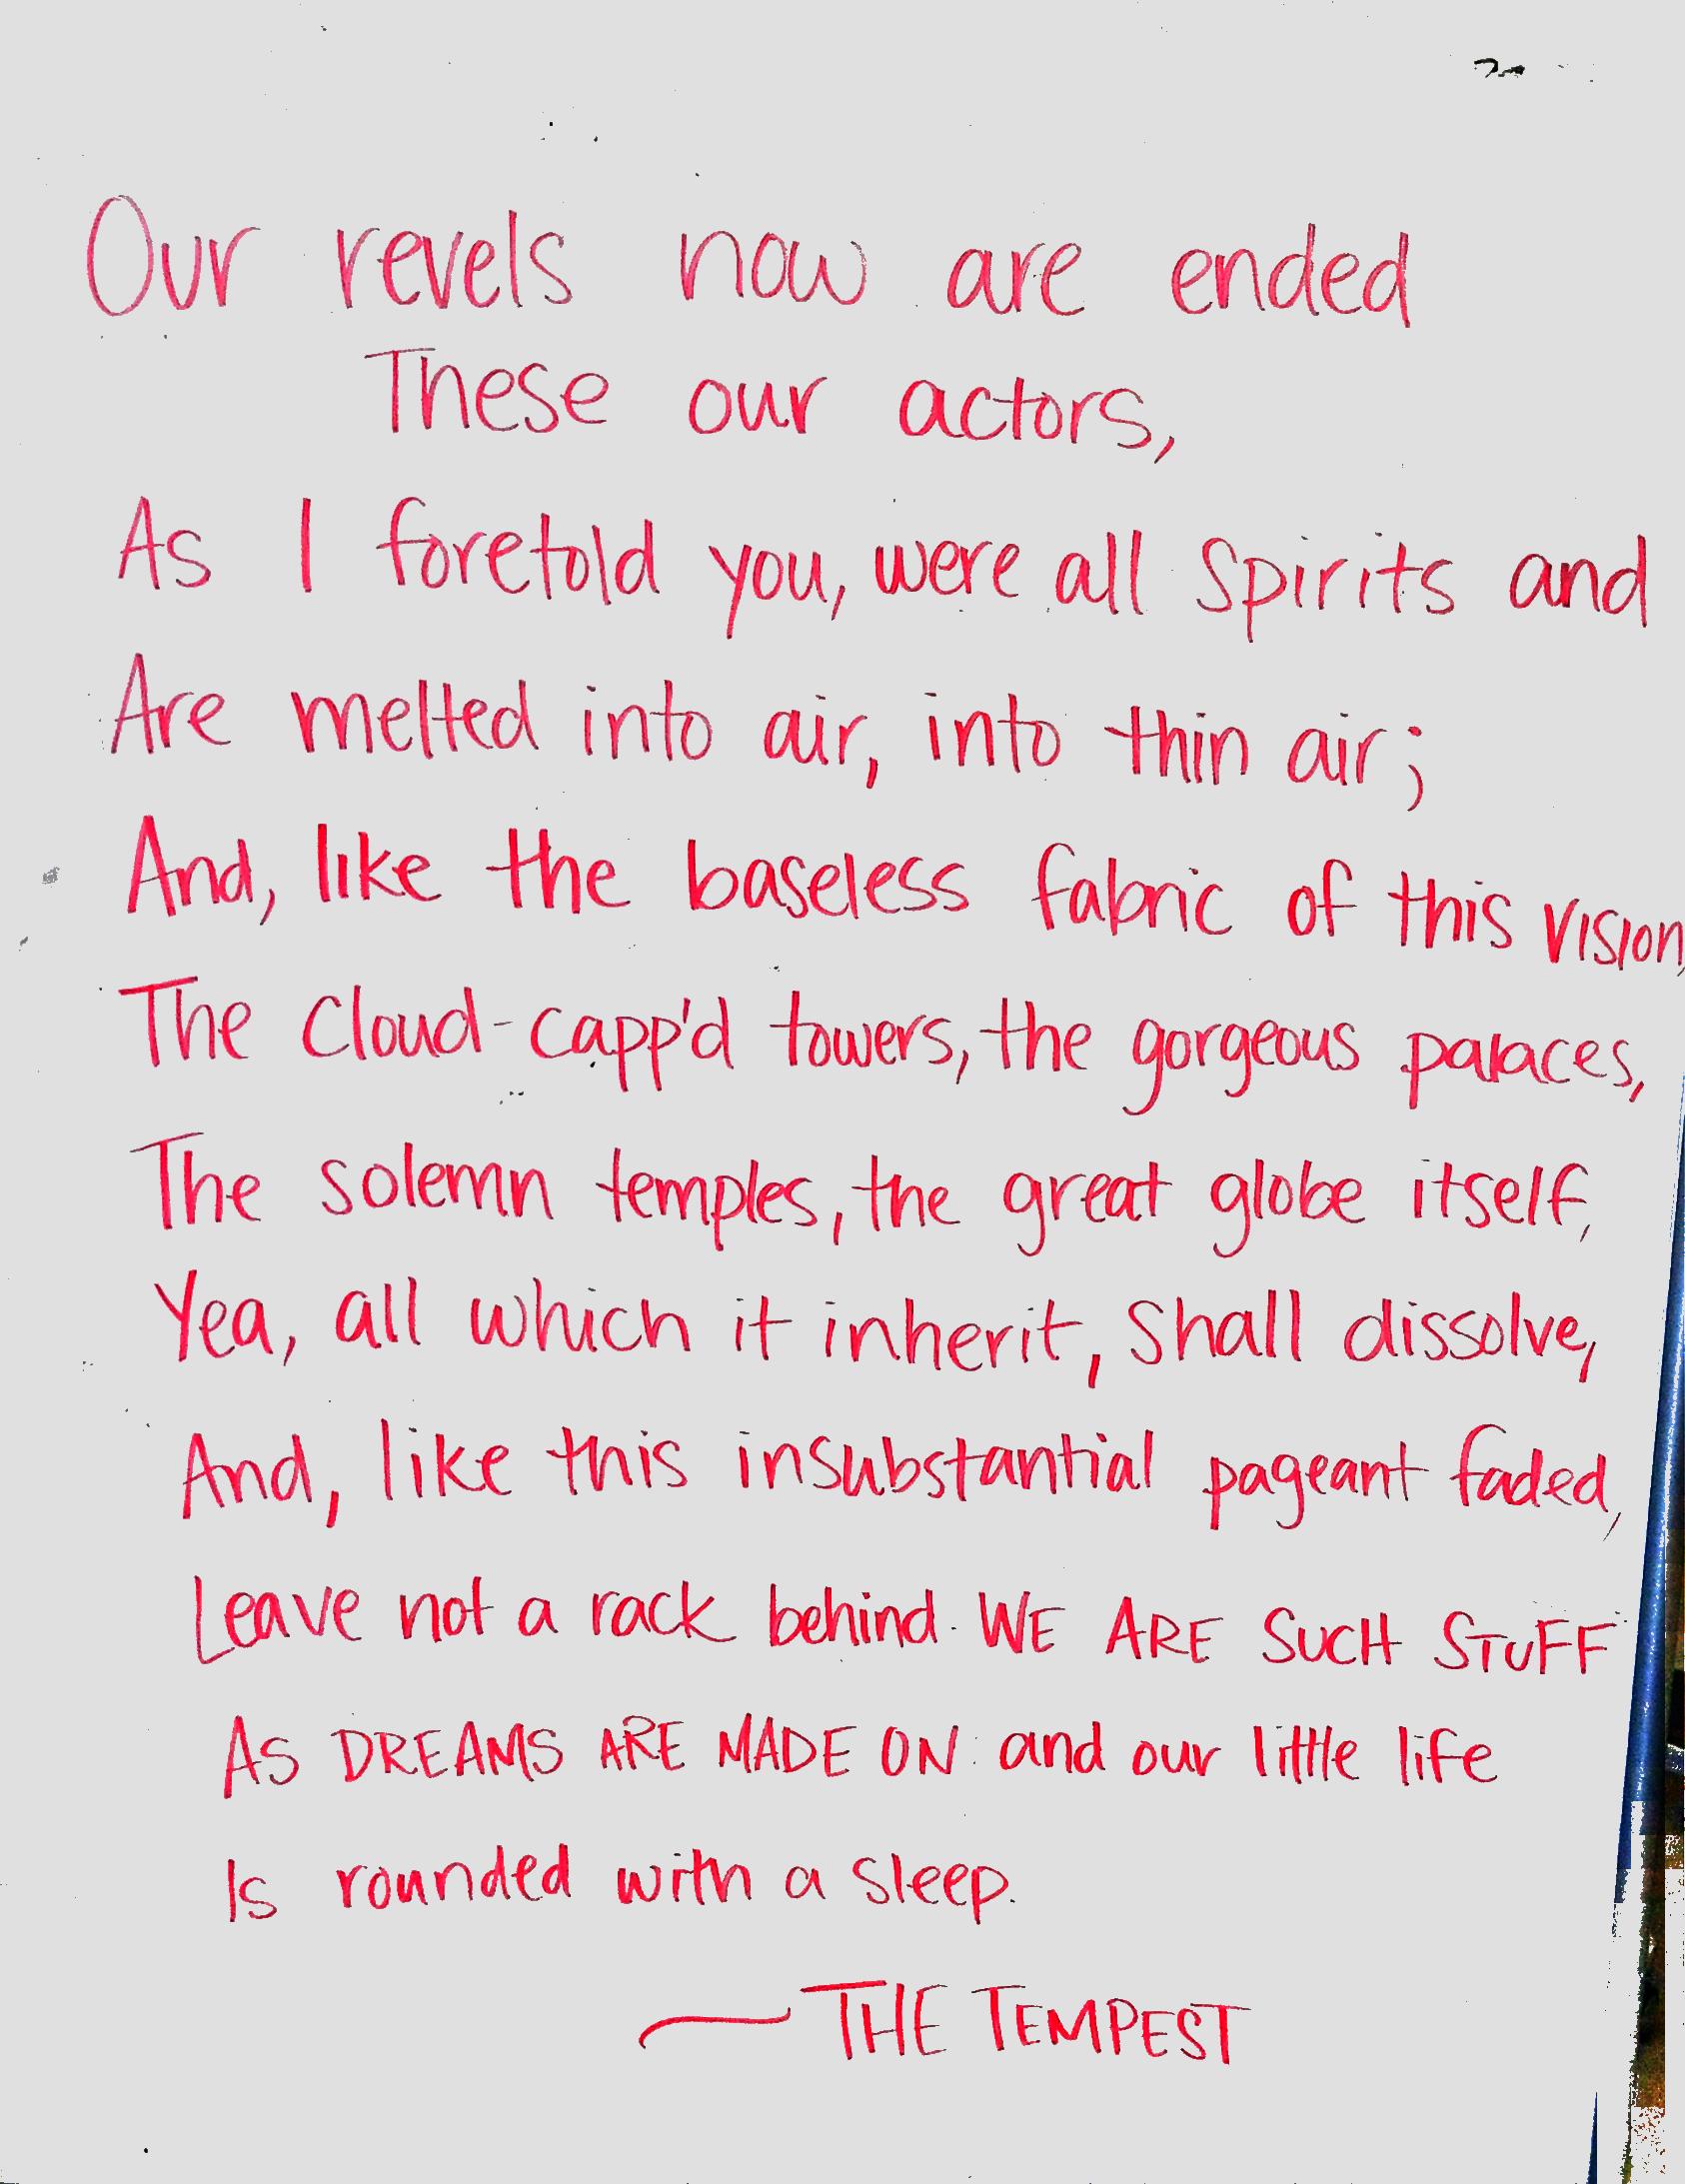 Our revels now are ended
These our actors,
As I foretold you, were all spirits and
Are melted into air, into thin air;
And, like the baseless fabric of this vision,
The cloud-capp'd towers, the gorgeous palaces,
The solemn temples, the great globe itself,
Yea, all which it inherit, shall dissolve,
And, like this insubstantial pageant faded,
Leave not a rack behind. WE ARE SUCH STUFF
AS DREAMS ARE MADE ON: and our little life
Is rounded with a sleep.
~ THE TEMPEST